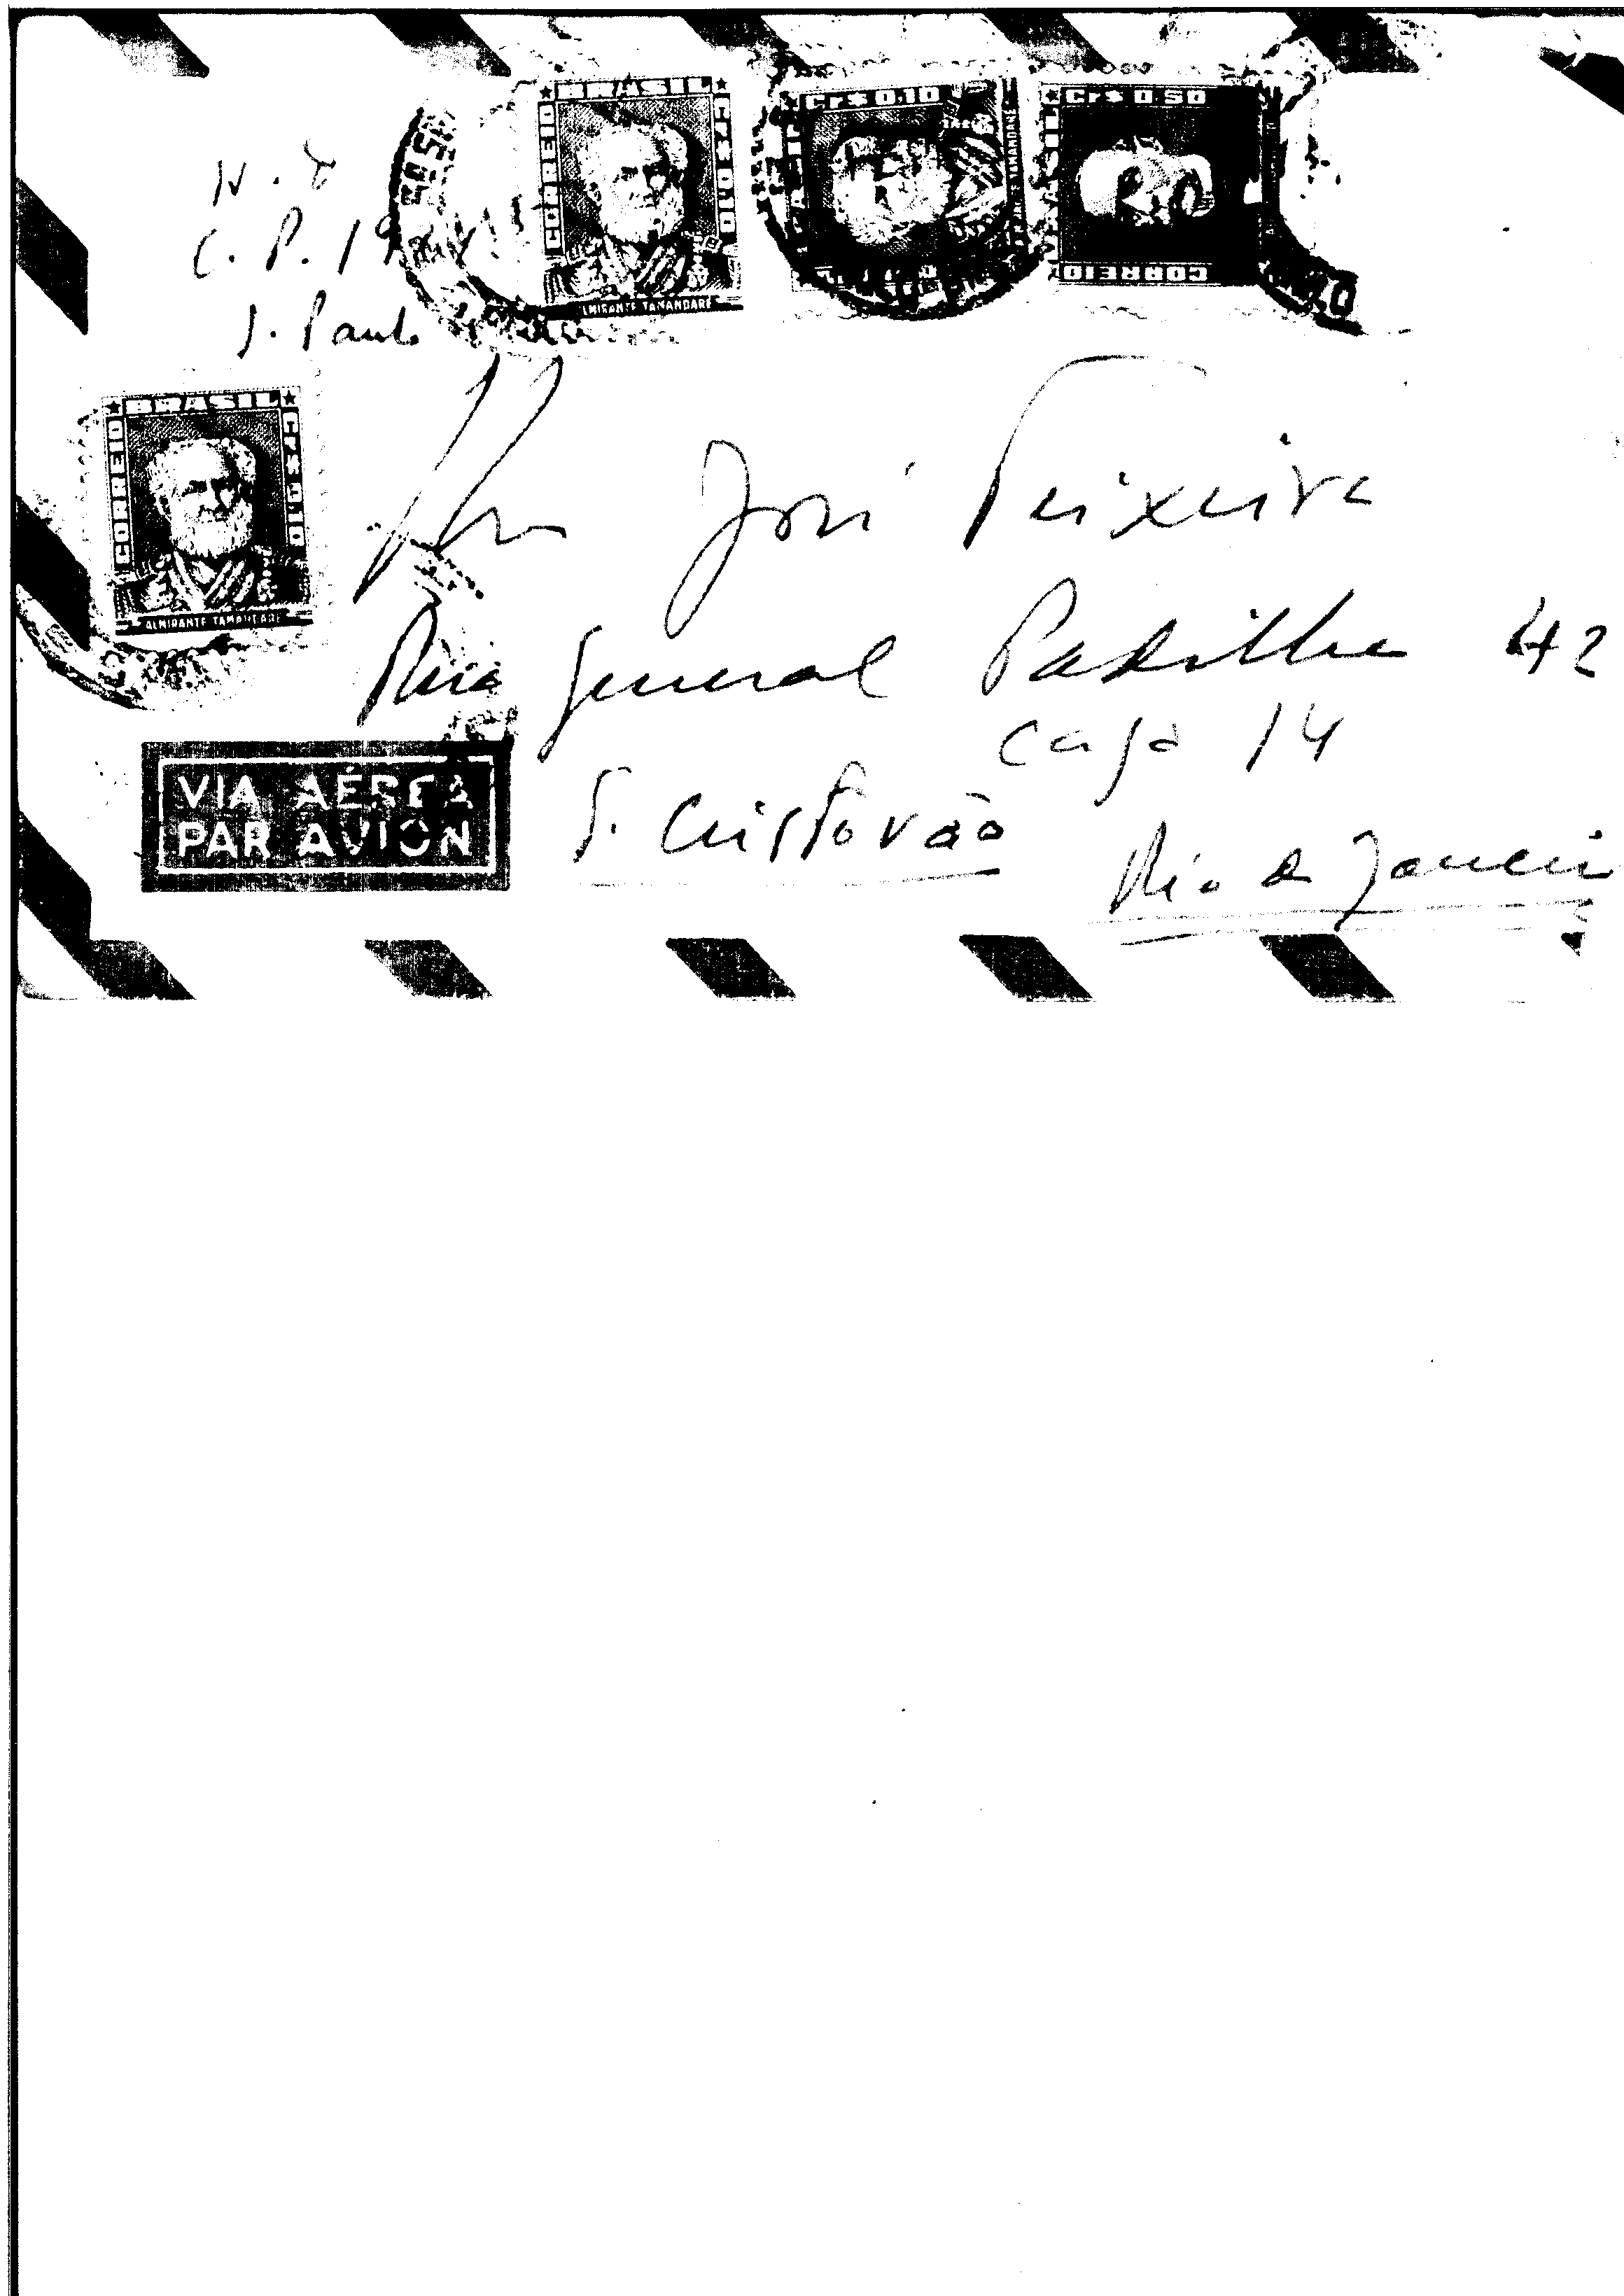 N. T
C. P. 19
S. Paulo
BRASIL
CORREIO
Cr$ 0,10
ALMIRANTE TAMANDARÉ
Cr$ 0.10
Cr$ 0.50
CORREIO
BRASIL
CORREIO
Cr$ 0,10
ALMIRANTE TAMANDARÉ
José Teixeira
Rua General Padilha 42
casa 14
S. Cristovão
Rio de Janeiro
VIA AÉREA
PAR AVION